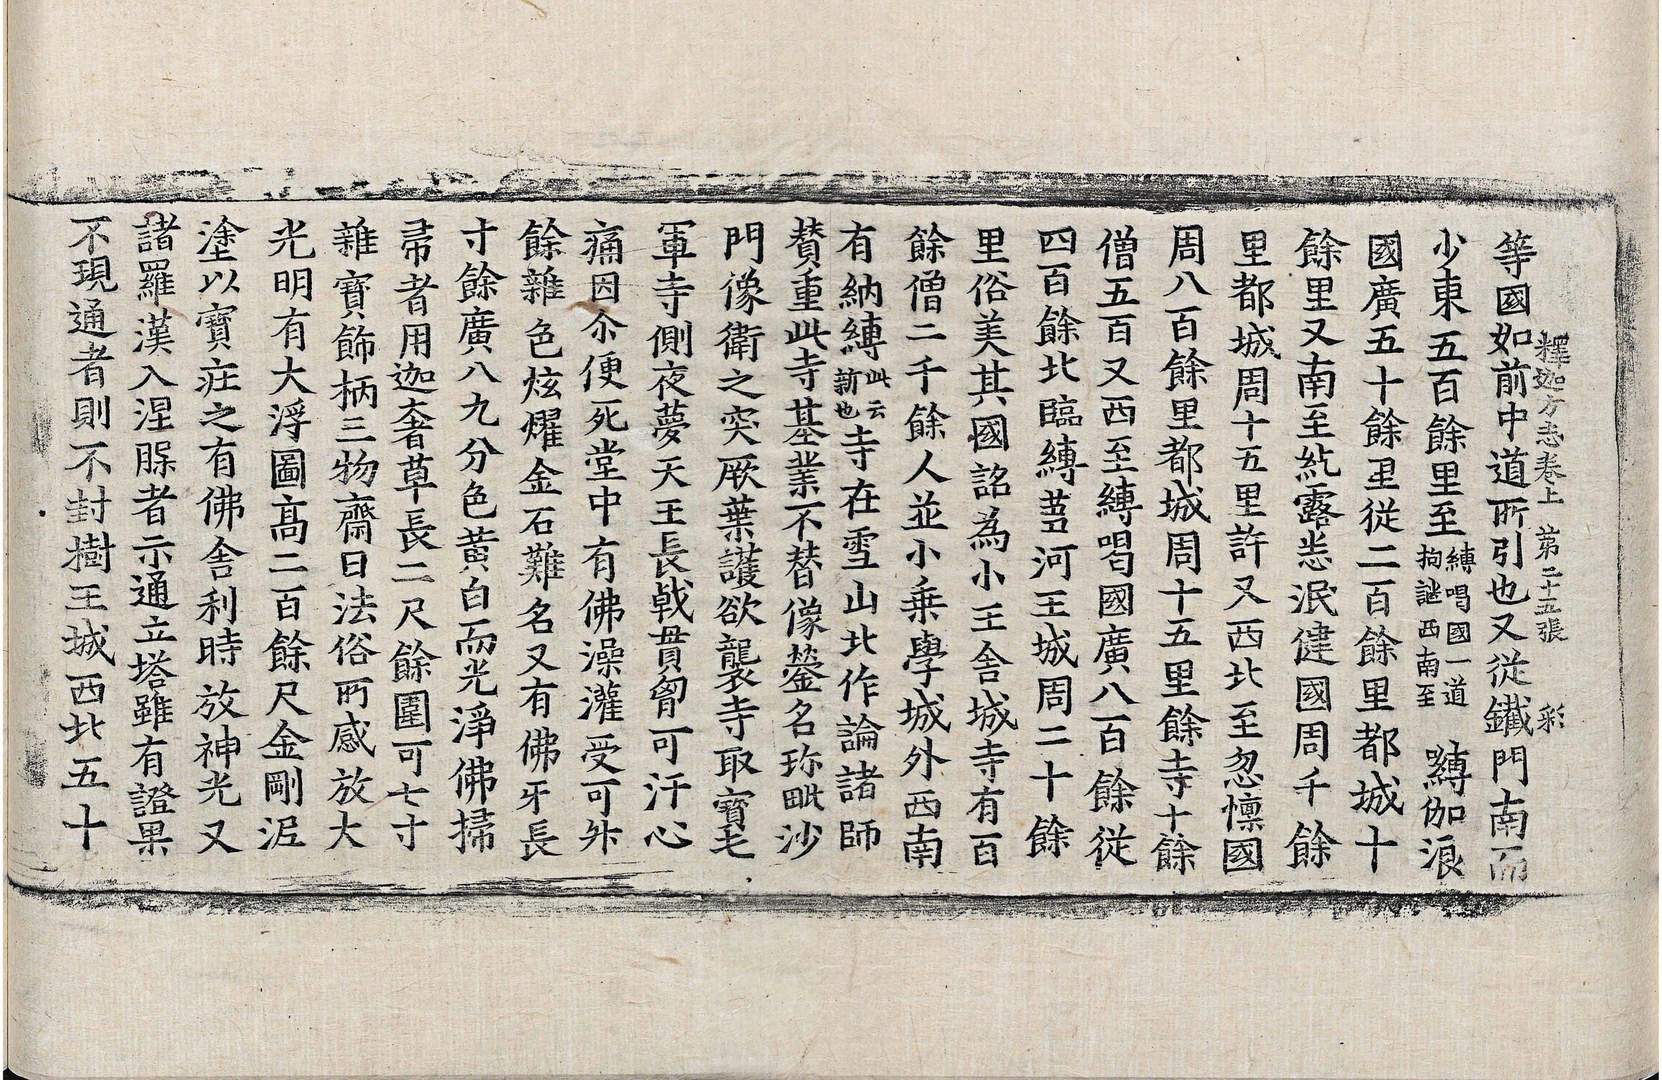 釋迦方志卷上　第二十五張　彩
等國如前中道所引也又從鐵門南而
少東五百餘里至縛喝國一道拘謎西南至縛伽浪
國廣五十餘里從二百餘里都城十
餘里又南至紇露悉泯健國周千餘
里都城周十五里許又西北至忽懍國
周八百餘里都城周十五里餘寺十餘
僧五百又西至縛喝國廣八百餘從
四百餘北臨縛蒭河王城周二十餘
里俗美其國詺為小王舍城寺有百
餘僧二千餘人並小乗學城外西南
有納縛此云新也寺在雪山北作論諸師
賛重此寺基業不替像鎣名珎毗沙
門像衛之突厥葉護欲襲寺取寶毛
軍寺側夜夢天王長戟貫胷可汗心
痛因尒便死堂中有佛澡灌受可外
餘雜色炫燿金石難名又有佛牙長
寸餘廣八九分色黄白而光淨佛掃
帚者用迦奢草長二尺餘圍可七寸
雜寶飾柄三物齋日法俗所感放大
光明有大浮圖高二百餘尺金剛泥
塗以寶荘之有佛舍利時放神光又
諸羅漢入涅槃者示通立塔雖有證果
不現通者則不封樹王城西北五十